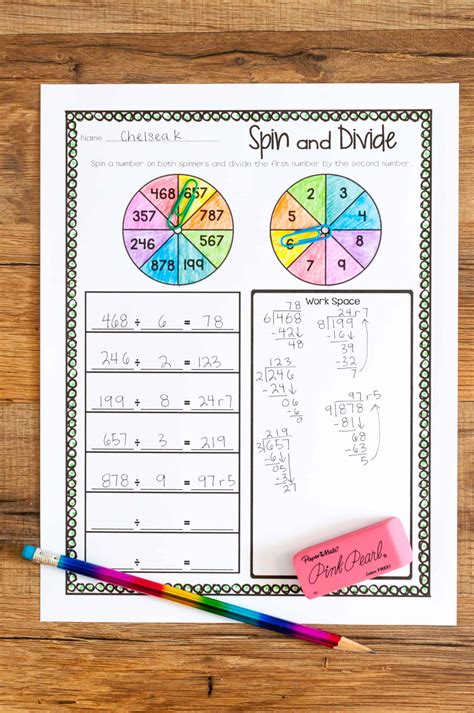 Name Chelsea K.
Spin and Divide
Spin a number on both spinners and divide the first number by the second number.
468 657
357 787
246 567
878 199
2 3
5 4
6 8
7 9
468 ÷ 6 = 78
246 ÷ 2 = 123
199 ÷ 8 = 24r7
657 ÷ 3 = 219
878 ÷ 9 = 97r5
÷ =
÷ =
Work Space
78
6 468
-42
48
123
2 246
-24
06
-6
0
219
3 657
-6
05
-3
27
24r7
8 199
-16
39
-32
7
97r5
9 878
-81
68
-63
5
Paper Mate
Pink Pearl